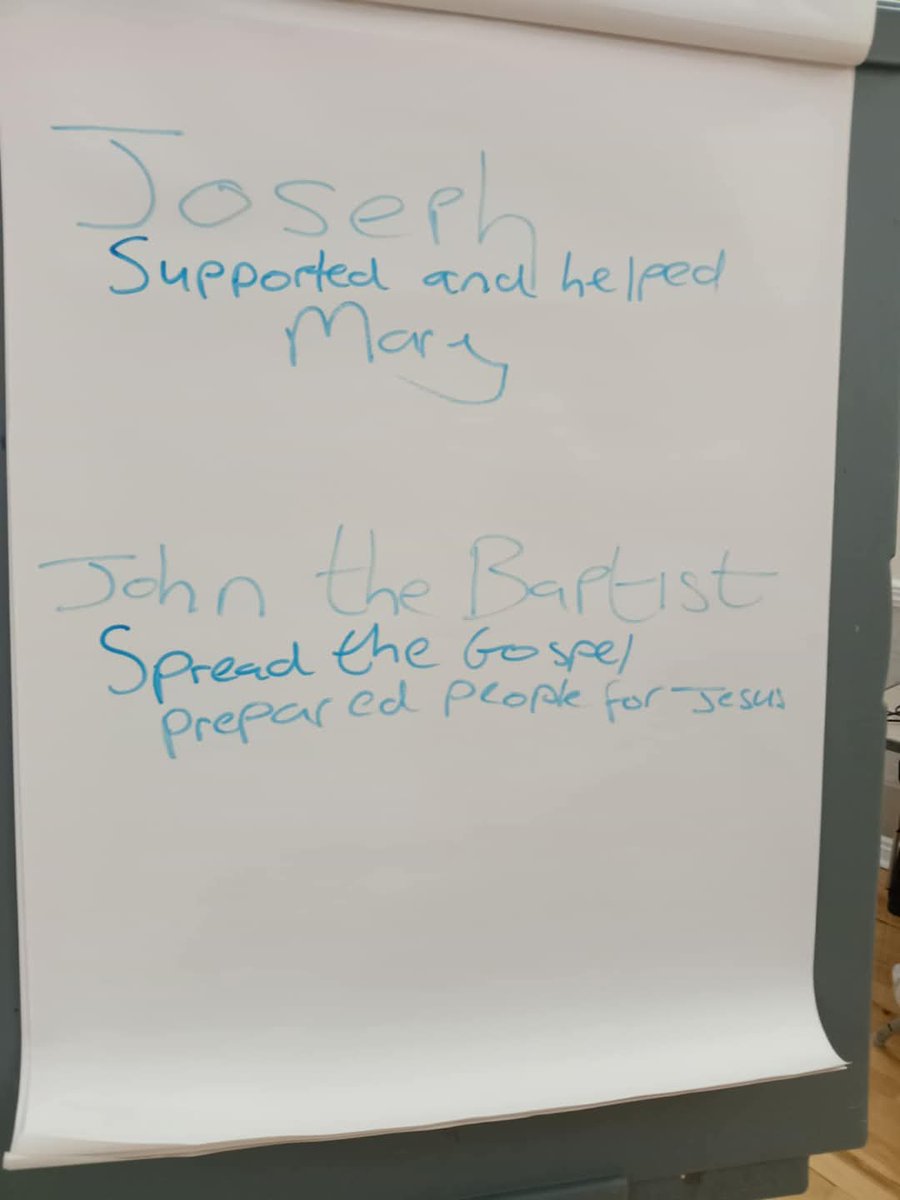 Joseph
Supported and helped
Mary
John the Baptist
Spread the Gospel
prepared people for Jesus